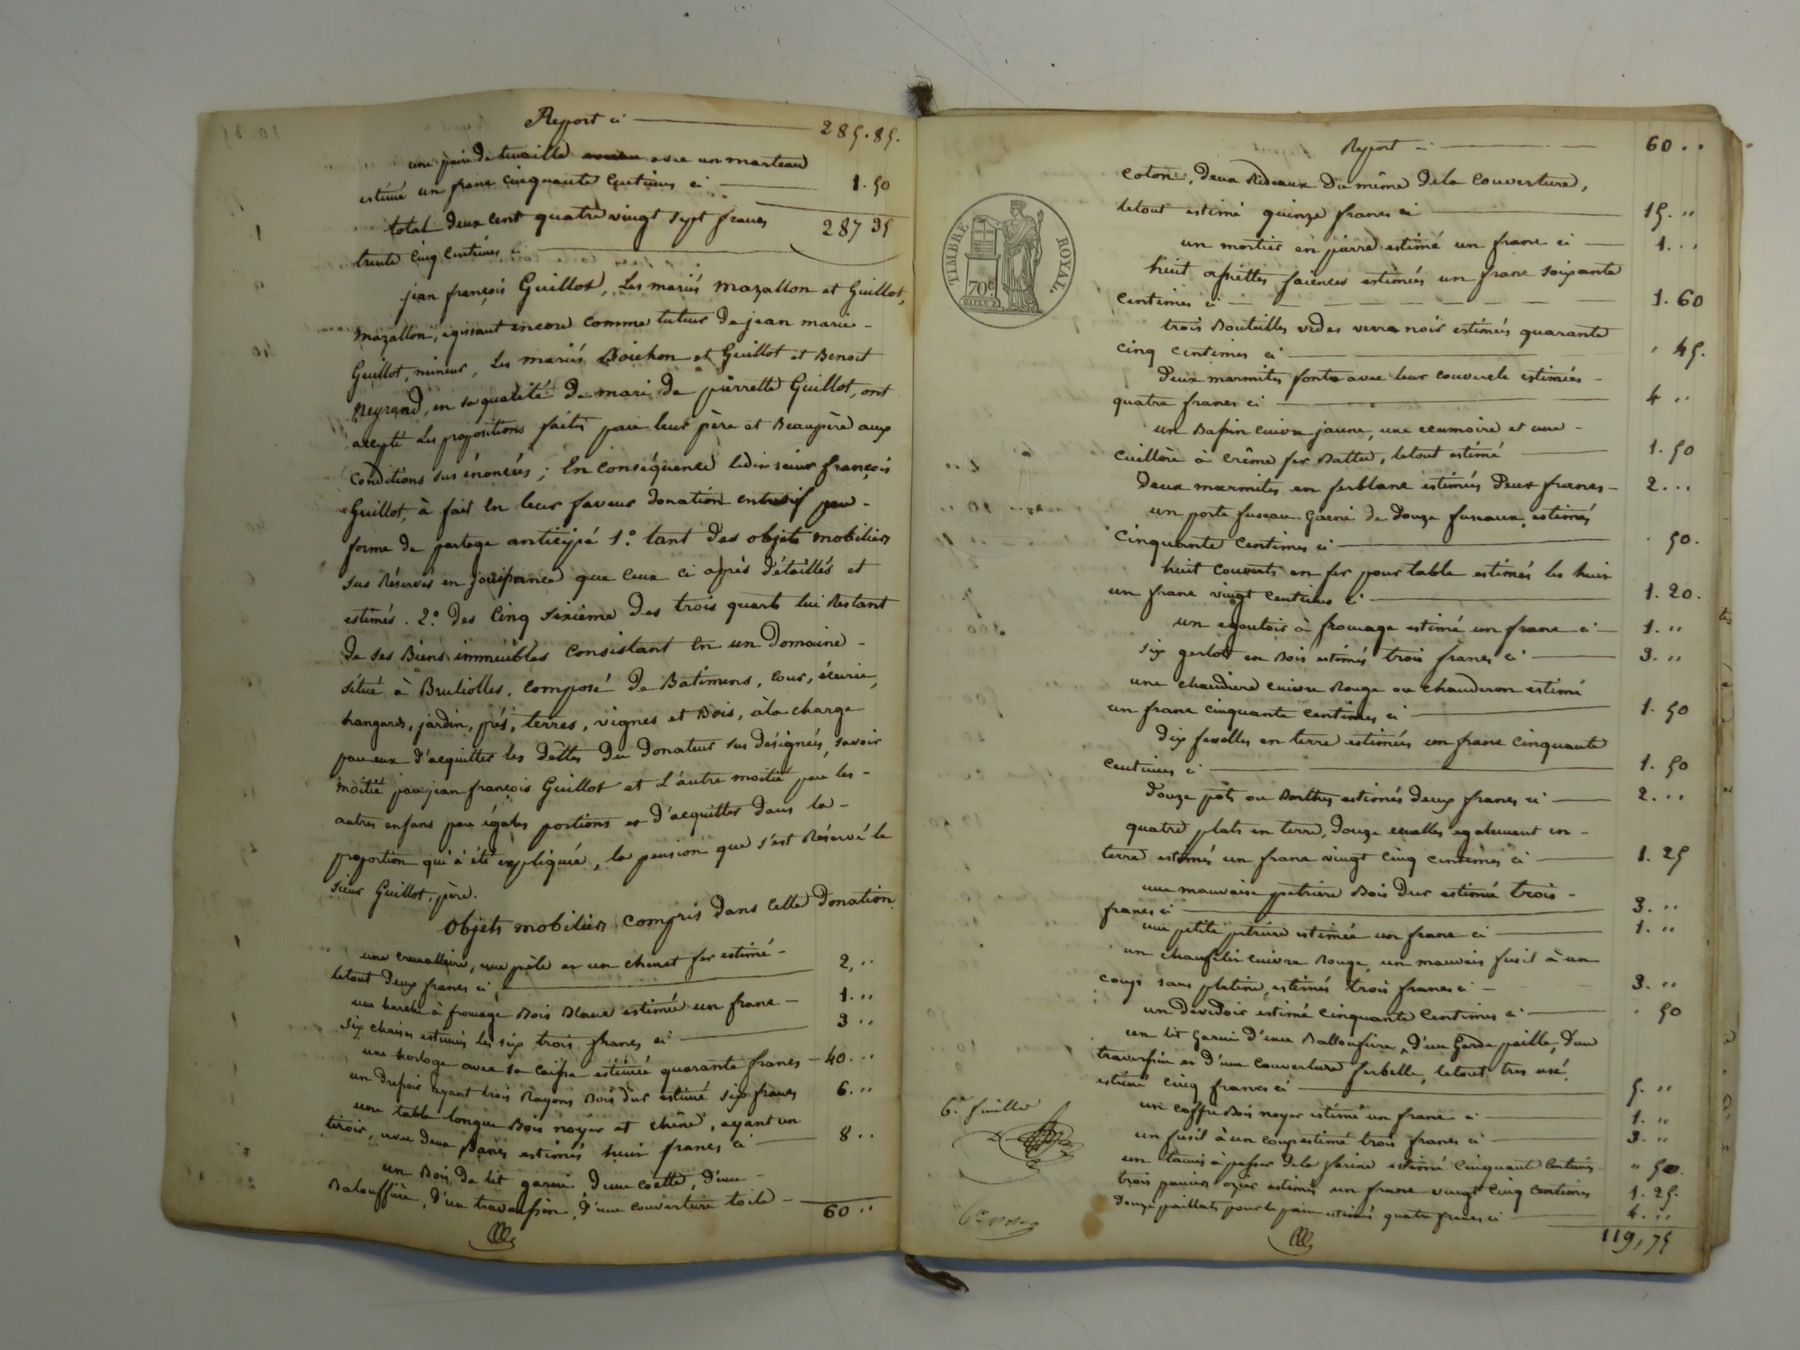 Report ci 285.85.
une paire de tenaille avec un marteau
estimé un franc cinquante centimes ci 1.50
total deux cent quatre vingt sept francs 287 35
trente cinq centimes ci
jean françois Guillot, Les mariés mazallon et Guillot,
mazallon, agissant encore comme tuteur de jean marie
Guillot, mineur, Les mariés Boichon et Guillot et Benoit
Neyrand, en sa qualité de mari de pierrette Guillot, ont
accepté Les propositions faites par leur père et Beaupère aux
conditions sus énoncées; En conséquence ledit sieur françois
Guillot, à fait en leur faveur donation entrevif par
forme de partage anticipé 1.° tant des objets mobiliers
sus Réservés en jouissance que ceux ci après détaillés et
estimés. 2.° des Cinq sixième des trois quarts lui Restant
de ses Biens immeubles consistant en un Domaine
situé à Brullioles, composé de Batimens, cour, écurie,
hangards, jardin, prés, terres, vignes et Bois, à la charge
par eux d'acquitter les dettes du donateur sus désignées, savoir
moitié par jean françois Guillot et L'autre moitié par les
autres enfans par égales portions et d'acquitter dans la
proportion qui à été expliquée, la pension que s'est Réservé le
sieur Guillot, père.
Objets mobiliers compris dans cette Donation
une cremaillere, une pèle et un chenet fer estimé
letout deux francs ci 2,..
une à fromage Bois Blanc estimée un franc 1...
Six chaises estimées les six trois francs ci 3..
une horloge avec sa caisse estimée quarante francs 40...
un ayant trois Rayons Bois dur estimé six francs 6...
une table longue Bois noyer et chêne, ayant un
tiroir, avec deux Bancs estimés huit francs ci 8..
un Bois de lit garni d'une coette, d'une
Balouffière, d'un traversin, d'une couverture toile
60..
Report ci 60..
coton, deux Rideaux du même dela Couverture,
letout estimé quinze francs ci 15...
un mortier en pierre estimé un franc ci 1...
huit assiettes faiences estimées un franc soixante
Centimes ci 1.60
trois Bouteilles vides verre noir estimées quarante
cinq centimes ci 45.
deux marmites fonte avec leur couvercle estimées
quatre francs ci 4..
un Bassin cuivre jaune, une ecumoire et une
cuillère à crême fer Battu, letout estimé 1.50
Deux marmites en ferblanc estimées deux francs 2...
un porte fuseau garni de douze fuseaux, estimés
Cinquante Centimes ci .50.
huit couverts en fer pour table estimés les huit
un franc vingt centimes ci 1.20.
un egoutoir à fromage estimé un franc ci 1...
six gerlots en Bois estimés trois francs ci 3...
une chaudiere cuivre Rouge ou chauderon estimé
un franc cinquante centimes ci 1.50
dix faselles en terre estimées un franc cinquante
centimes ci 1.50
douze pots ou estimés deux francs ci 2...
quatre plats en terre, douze écuelles également en
terre estimés un franc vingt cinq centimes ci 1.25
une mauvaise petriere Bois dur estimée trois
francs ci 3...
une petite petriere estimée un franc ci 1...
un cuivre Rouge, un mauvais fusil à un
coup sans platine, estimés trois francs ci 3...
un devidoir estimé cinquante Centimes ci .50
un lit Garni d'une Balloufiere, d'un Garde paille, d'un
traversin et d'une couverture, letout tres usé,
estimé cinq francs ci 5...
un coffre Bois noyer estimé un franc ci 1...
un fusil à un coup estimé trois francs ci 3...
un tamis à passer dela farine estimé Cinquante Centimes 50.
trois paniers ozier estimés un franc vingt cinq Centimes 1.25.
douze paillats pour le pain estimés quatre francs ci 4...
119,75
TIMBRE ROYAL.
70c
6.e feuille